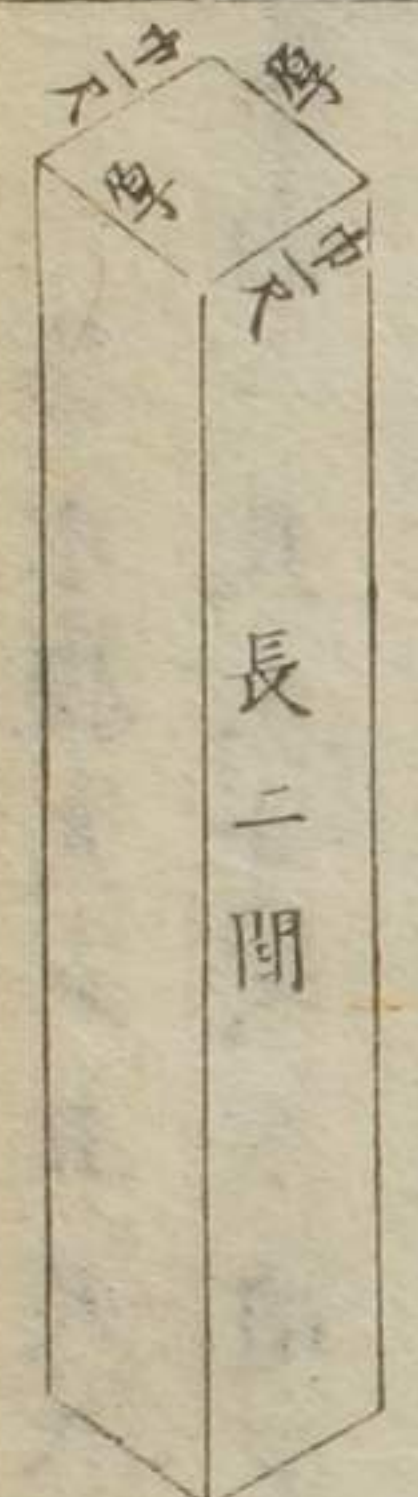 巾一尺
厚
厚
巾一尺
長二間